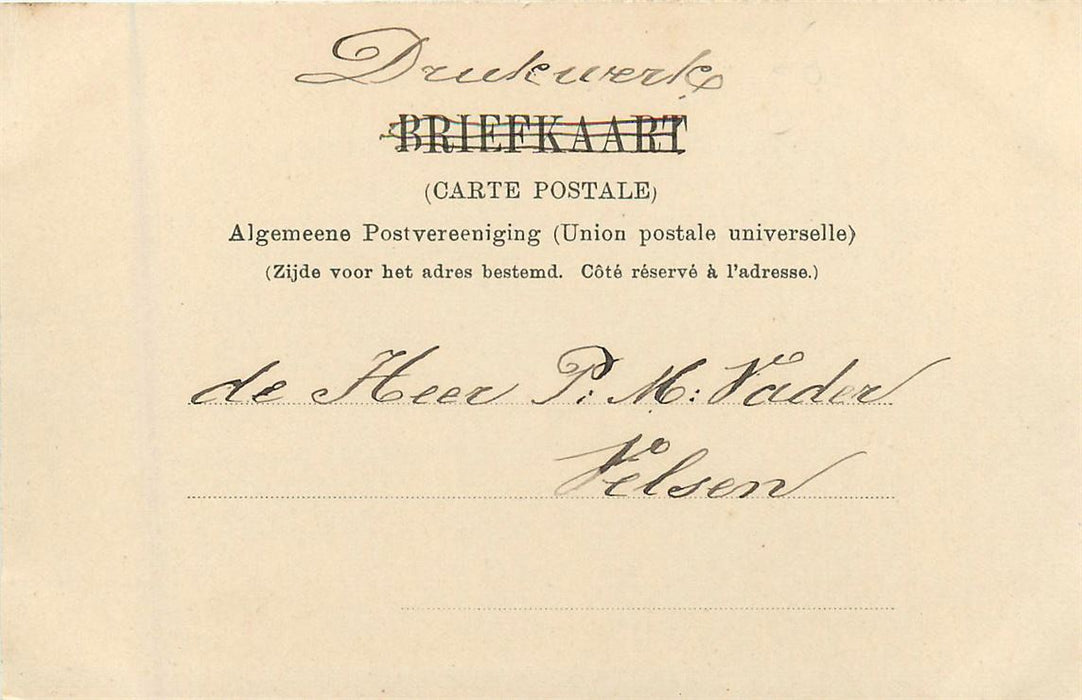 Drukwerk
BRIEFKAART
(CARTE POSTALE)
Algemeene Postvereeniging (Union postale universelle)
(Zijde voor het adres bestemd. Côté réservé à l'adresse.)
de Heer P: M: Vader
Velsen